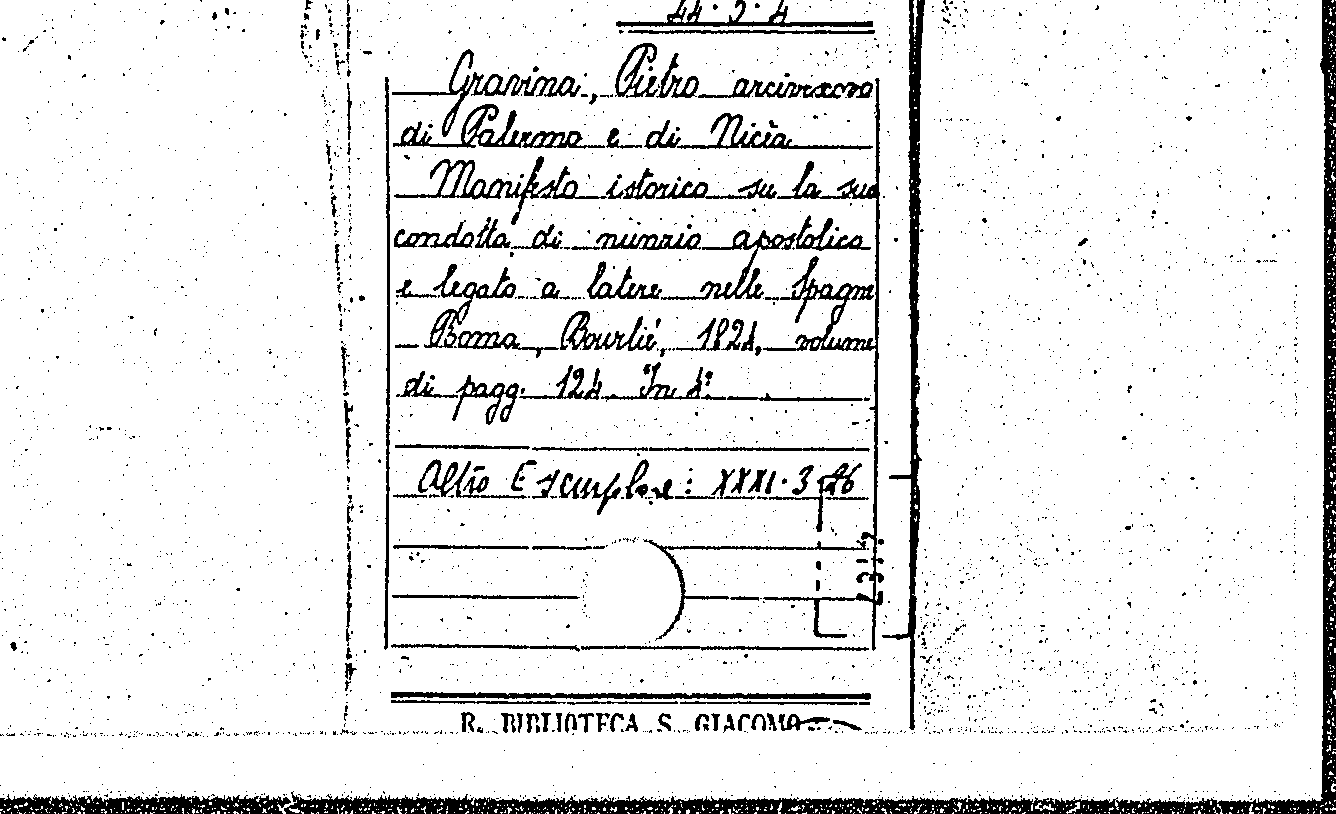 44·5·4
Gravina, Pietro arcivescovo
di Palermo e di Nicèa
Manifesto istorico su la sua
condotta di nunzio apostolico
e legato a latere nelle Spagne
Roma, Bourlié, 1824, volume
di pagg. 124. In 4º
Altro Esemplare: XXXI·3·
R. BIBLIOTECA S. GIACOMO